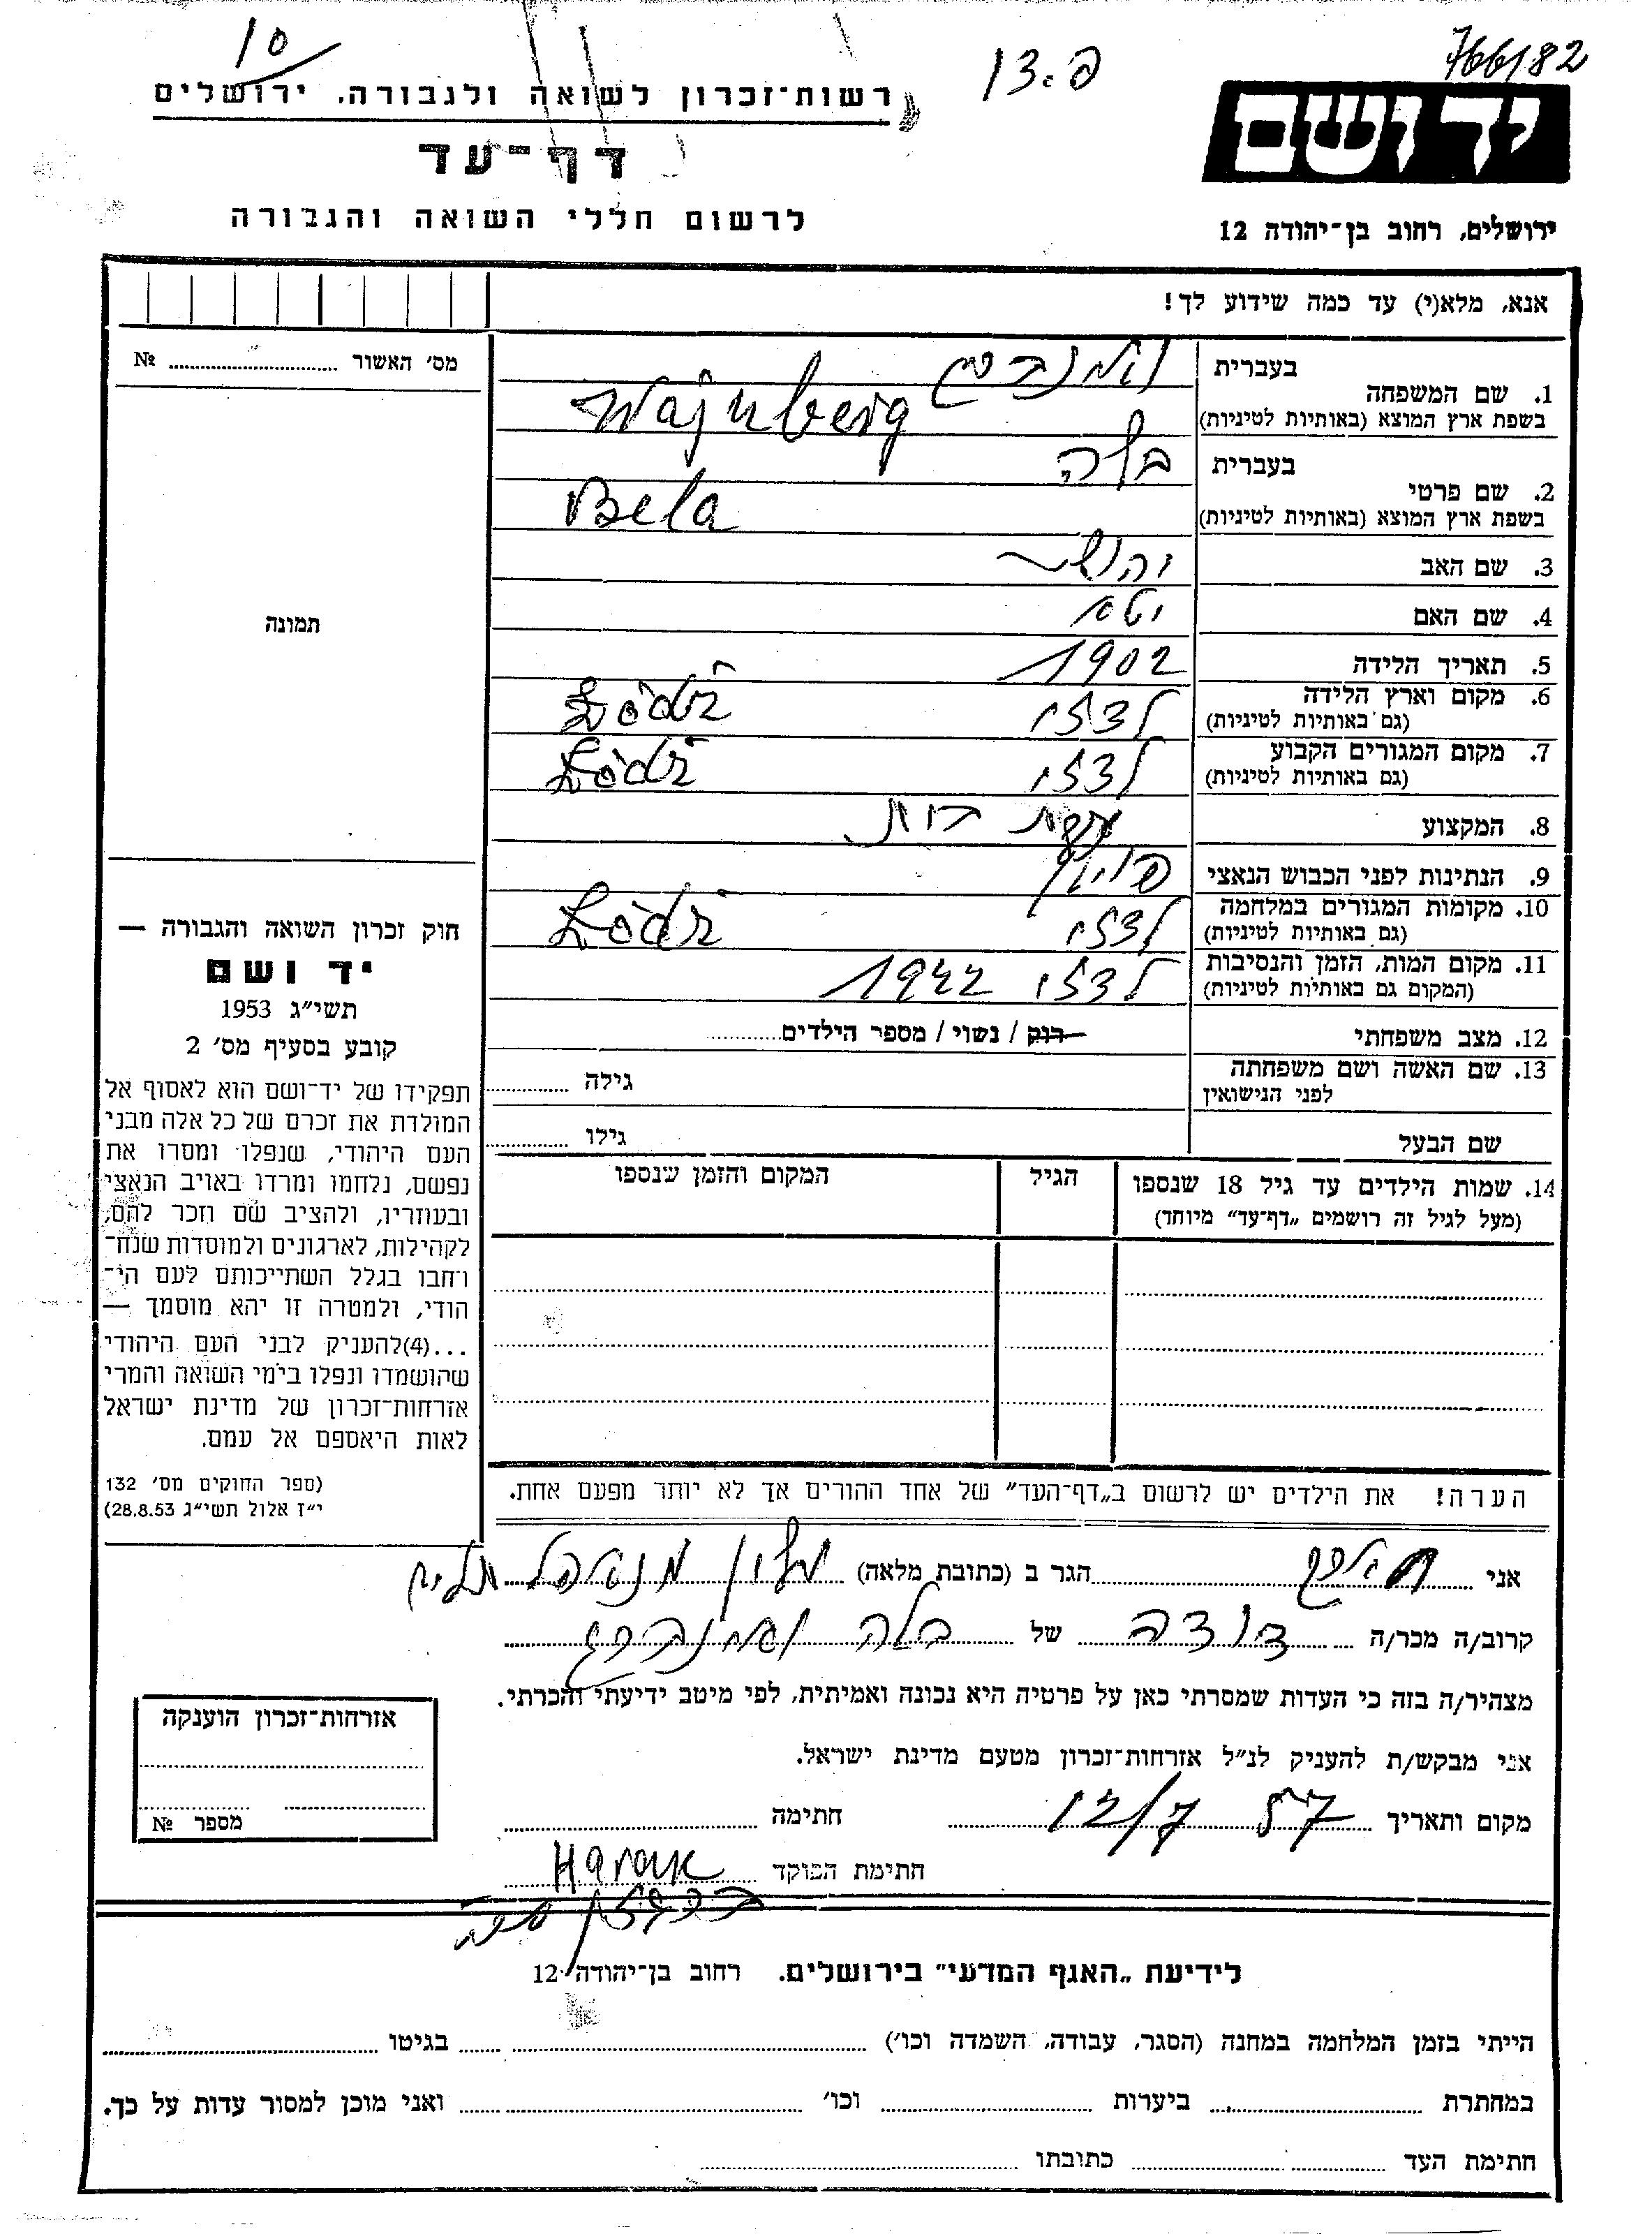 10
פ.13
766182
רשות־זכרון לשואה ולגבורה, ירושלים
דף־עד
לרשום חללי השואה והגבורה
יד ושם
ירושלים, רחוב בן־יהודה 12
אנא, מלא(י) עד כמה שידוע לך!
מס׳ האשור № 
תמונה
1. שם המשפחה
בעברית
בשפת ארץ המוצא (באותיות לטיניות) Wajnberg
2. שם פרטי
בעברית בלה
בשפת ארץ המוצא (באותיות לטיניות) Bela
3. שם האב
4. שם האם יטא
5. תאריך הלידה 1902
6. מקום וארץ הלידה
(גם באותיות לטיניות) לודז׳ Łódź
7. מקום המגורים הקבוע
(גם באותיות לטיניות) לודז׳ Łódź
8. המקצוע עקרת בית
9. הנתינות לפני הכבוש הנאצי פולין
10. מקומות המגורים במלחמה
(גם באותיות לטיניות) לודז׳ Łódź
11. מקום המות, הזמן והנסיבות
(המקום גם באותיות לטיניות) לודז׳ 1942
12. מצב משפחתי רוק / נשוי / מספר הילדים
13. שם האשה ושם משפחתה
לפני הנישואין
גילה
שם הבעל
גילו
14. שמות הילדים עד גיל 18 שנספו
(מעל לגיל זה רושמים „דף־עד״ מיוחד)
הגיל
המקום והזמן שנספו
הערה! את הילדים יש לרשום ב„דף־העד״ של אחד ההורים אך לא יותר מפעם אחת.
חוק זכרון השואה והגבורה —
יד ושם
תשי״ג 1953
קובע בסעיף מס׳ 2
תפקידו של יד־ושם הוא לאסוף אל
המולדת את זכרם של כל אלה מבני
העם היהודי, שנפלו ומסרו את
נפשם, נלחמו ומרדו באויב הנאצי
ובעוזריו, ולהציב שם וזכר להם,
לקהילות, לארגונים ולמוסדות שנח־
רבו בגלל השתייכותם לעם הי־
הודי, ולמטרה זו יהא מוסמך —
...(4)להעניק לבני העם היהודי
שהושמדו ונפלו בימי השואה והמרי
אזרחות־זכרון של מדינת ישראל
לאות היאספם אל עמם.
(ספר החוקים מס׳ 132
י״ז אלול תשי״ג 28.8.53)
אני הגר ב (כתובת מלאה)
קרוב/ה מכר/ה דודה של בלה ואינברג
מצהיר/ה בזה כי העדות שמסרתי כאן על פרטיה היא נכונה ואמיתית, לפי מיטב ידיעתי והכרתי.
אני מבקש/ת להעניק לנ״ל אזרחות־זכרון מטעם מדינת ישראל.
מקום ותאריך 12/7 57 חתימה
חתימת הפוקד
אזרחות־זכרון הוענקה
מספר №
לידיעת „האגף המדעי״ בירושלים. רחוב בן־יהודה 12
הייתי בזמן המלחמה במחנה (הסגר, עבודה, השמדה וכו׳) בגיטו
במחתרת ביערות וכו׳ ואני מוכן למסור עדות על כך.
חתימת העד כתובתו